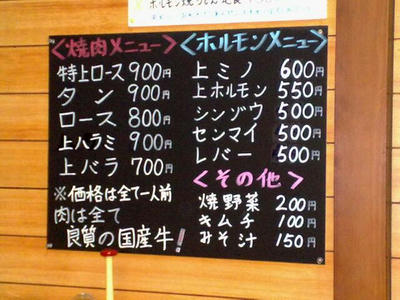 ＜焼肉メニュー＞
特上ロース 900円
タン 900円
ロース 800円
上ハラミ 900円
上バラ 700円
※価格は全て一人前
肉は全て
良質の国産牛！
＜ホルモンメニュー＞
上ミノ 600円
上ホルモン 550円
シンゾウ 500円
センマイ 500円
レバー 500円
＜その他＞
焼野菜 200円
キムチ 100円
みそ汁 150円